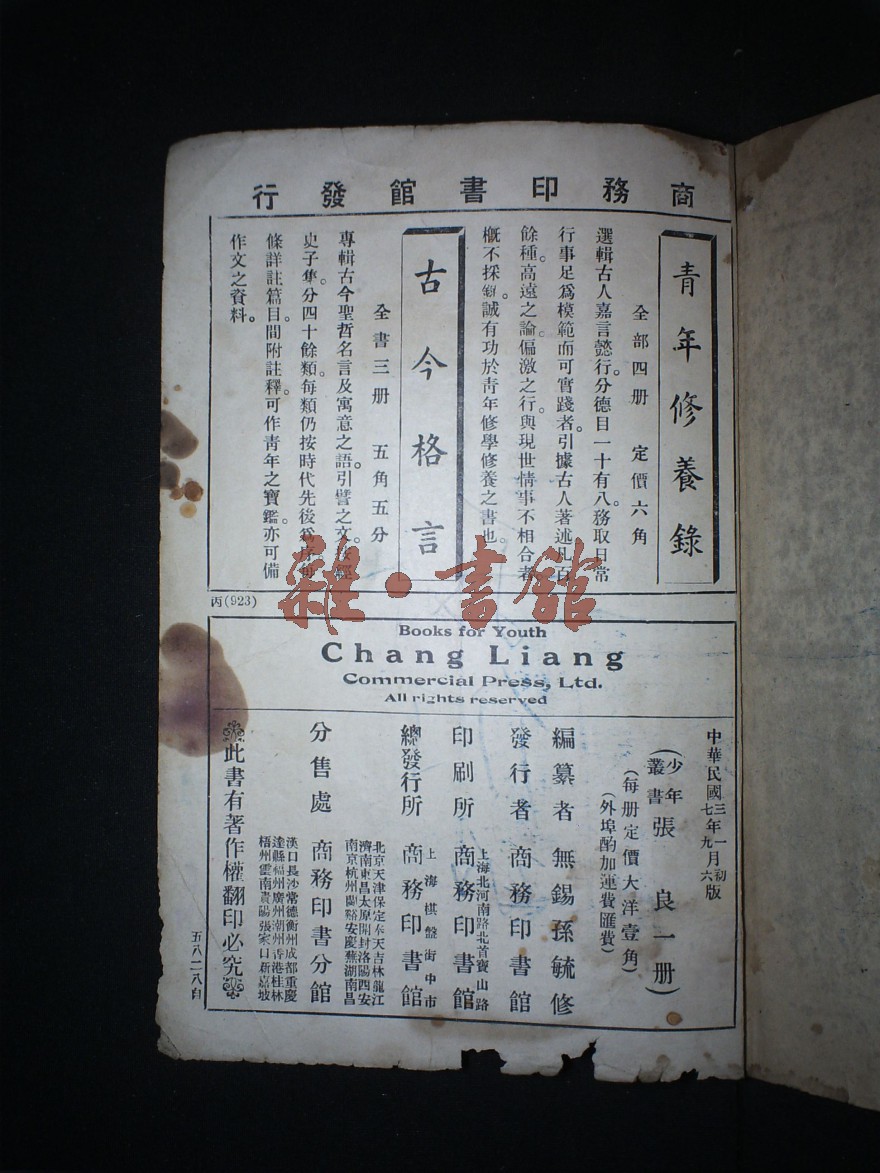 商務印書館發行
青年修養錄
全部四册 定價六角
選輯古人嘉言懿行。分德目一十有八。務取日常
行事足爲模範而可實踐者。引據古人著述凡百
餘種。高遠之論。偏激之行。與現世情事不相合者。
概不採錄。誠有功於青年修學修養之書也。
古今格言
全書三册 五角五分
專輯古今聖哲名言及寓意之語。引譬之文。按經
史子集分四十餘類。每類仍按時代先後爲序。每
條詳註篇目。間附註釋。可作青年之寶鑑。亦可備
作文之資料。
丙(923)
雜·書館
Books for Youth
Chang Liang
Commercial Press, Ltd.
All rights reserved
中華民國三年一月初版
七年九月六版
(少年叢書張良一册)
(每册定價大洋壹角)
(外埠酌加運費匯費)
編纂者 無錫孫毓修
發行者 商務印書館
上海北河南路北首寶山路
印刷所 商務印書館
上海棋盤街中市
總發行所 商務印書館
北京天津保定奉天吉林龍江
濟南東昌太原開封洛陽西安
南京杭州蘭谿安慶蕪湖南昌
分售處 商務印書分館
漢口長沙常德衡州成都重慶
達縣福州廣州潮州香港桂林
梧州雲南貴陽張家口新嘉坡
此書有著作權翻印必究
五八二八自